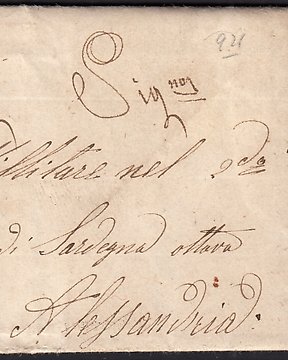 921
Sig.nor
Militare nel 2do
di Sardegna ottava
Alessandria.